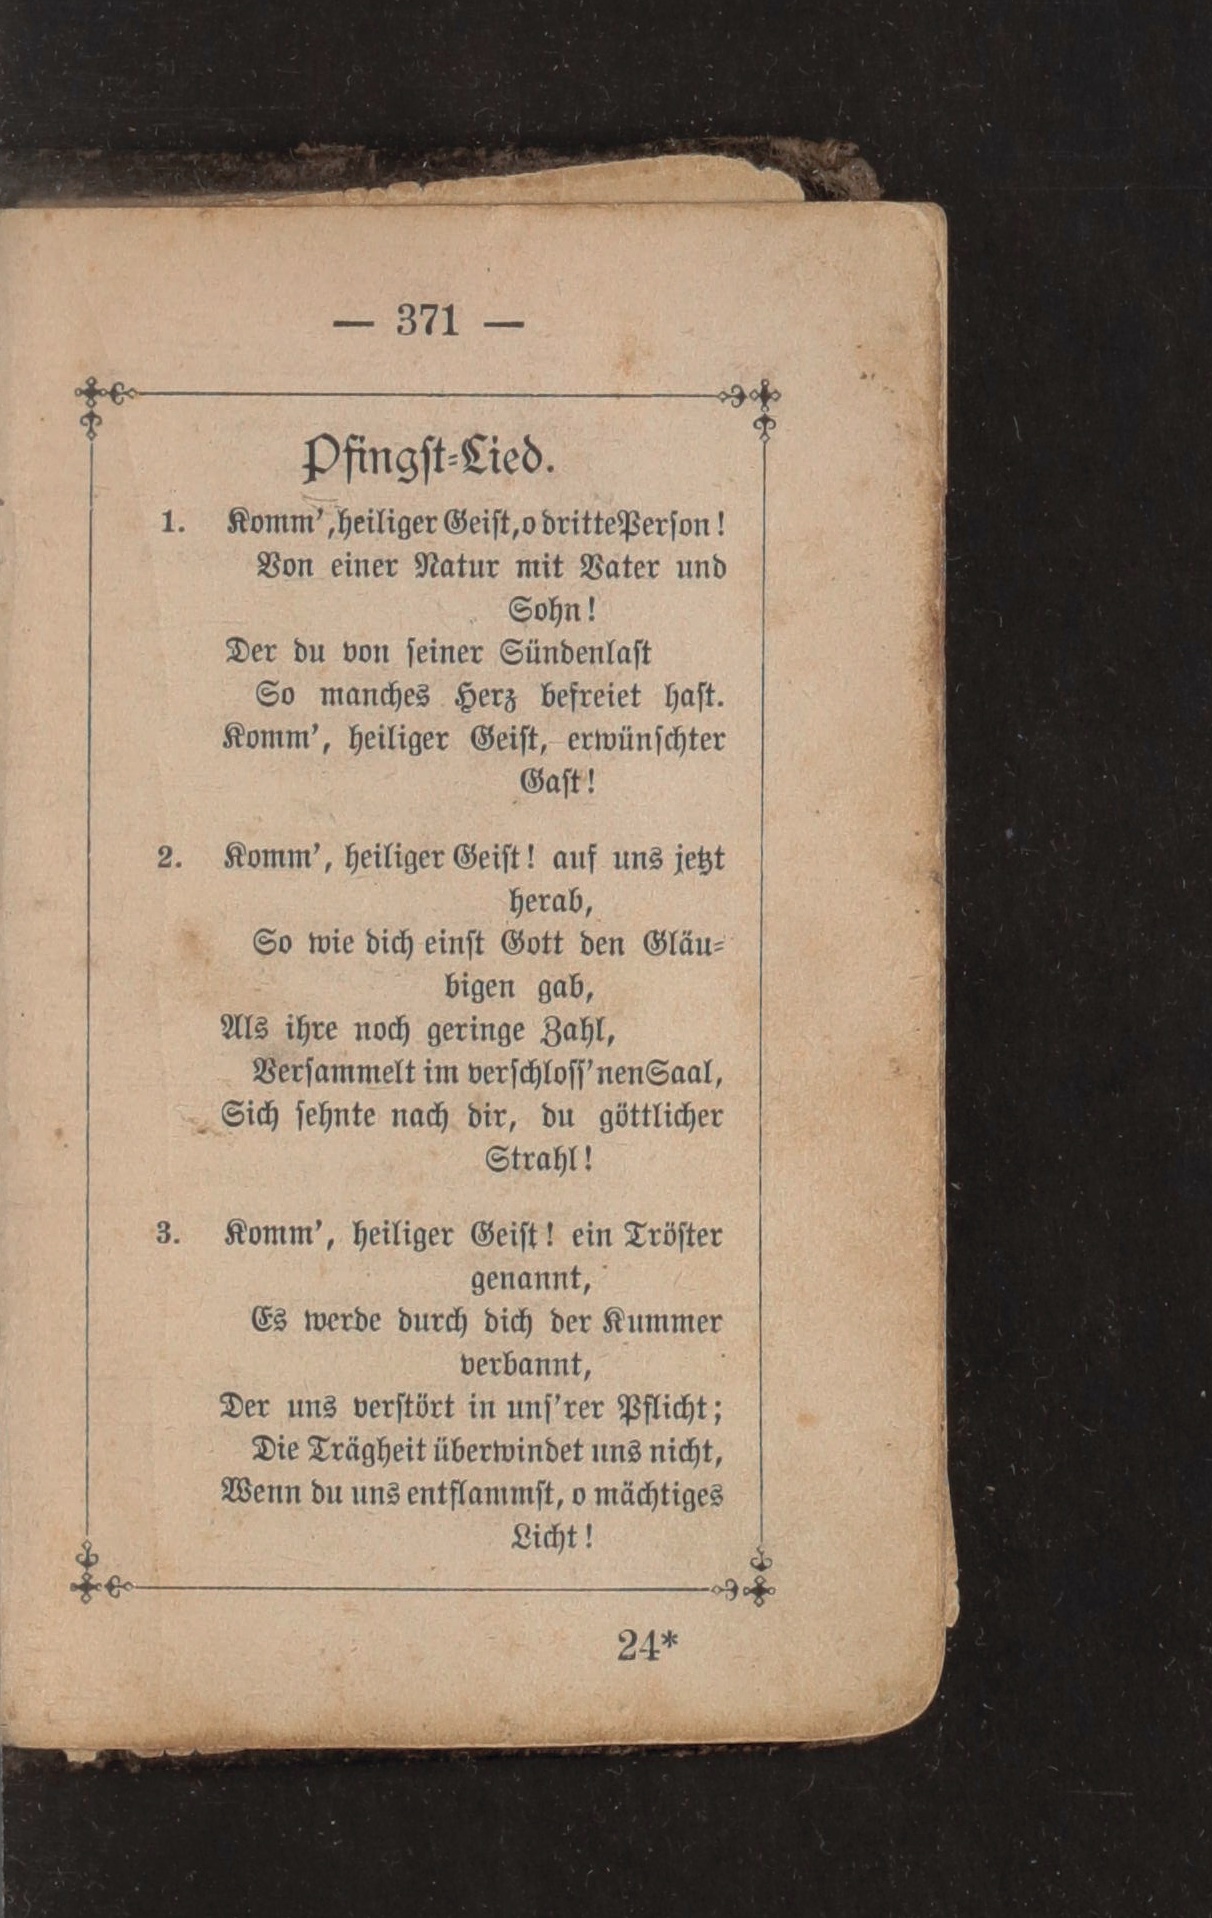 — 371 —
Pfingſt-Lied.
1. Komm', heiliger Geiſt, o dritte Perſon!
Von einer Natur mit Vater und
Sohn!
Der du von ſeiner Sündenlaſt
So manches Herz befreiet haſt.
Komm', heiliger Geiſt, erwünſchter
Gaſt!
2. Komm', heiliger Geiſt! auf uns jetzt
herab,
So wie dich einſt Gott den Gläu-
bigen gab,
Als ihre noch geringe Zahl,
Verſammelt im verſchloſſ'nen Saal,
Sich ſehnte nach dir, du göttlicher
Strahl!
3. Komm', heiliger Geiſt! ein Tröſter
genannt,
Es werde durch dich der Kummer
verbannt,
Der uns verſtört in unſ'rer Pflicht;
Die Trägheit überwindet uns nicht,
Wenn du uns entflammſt, o mächtiges
Licht!
24*